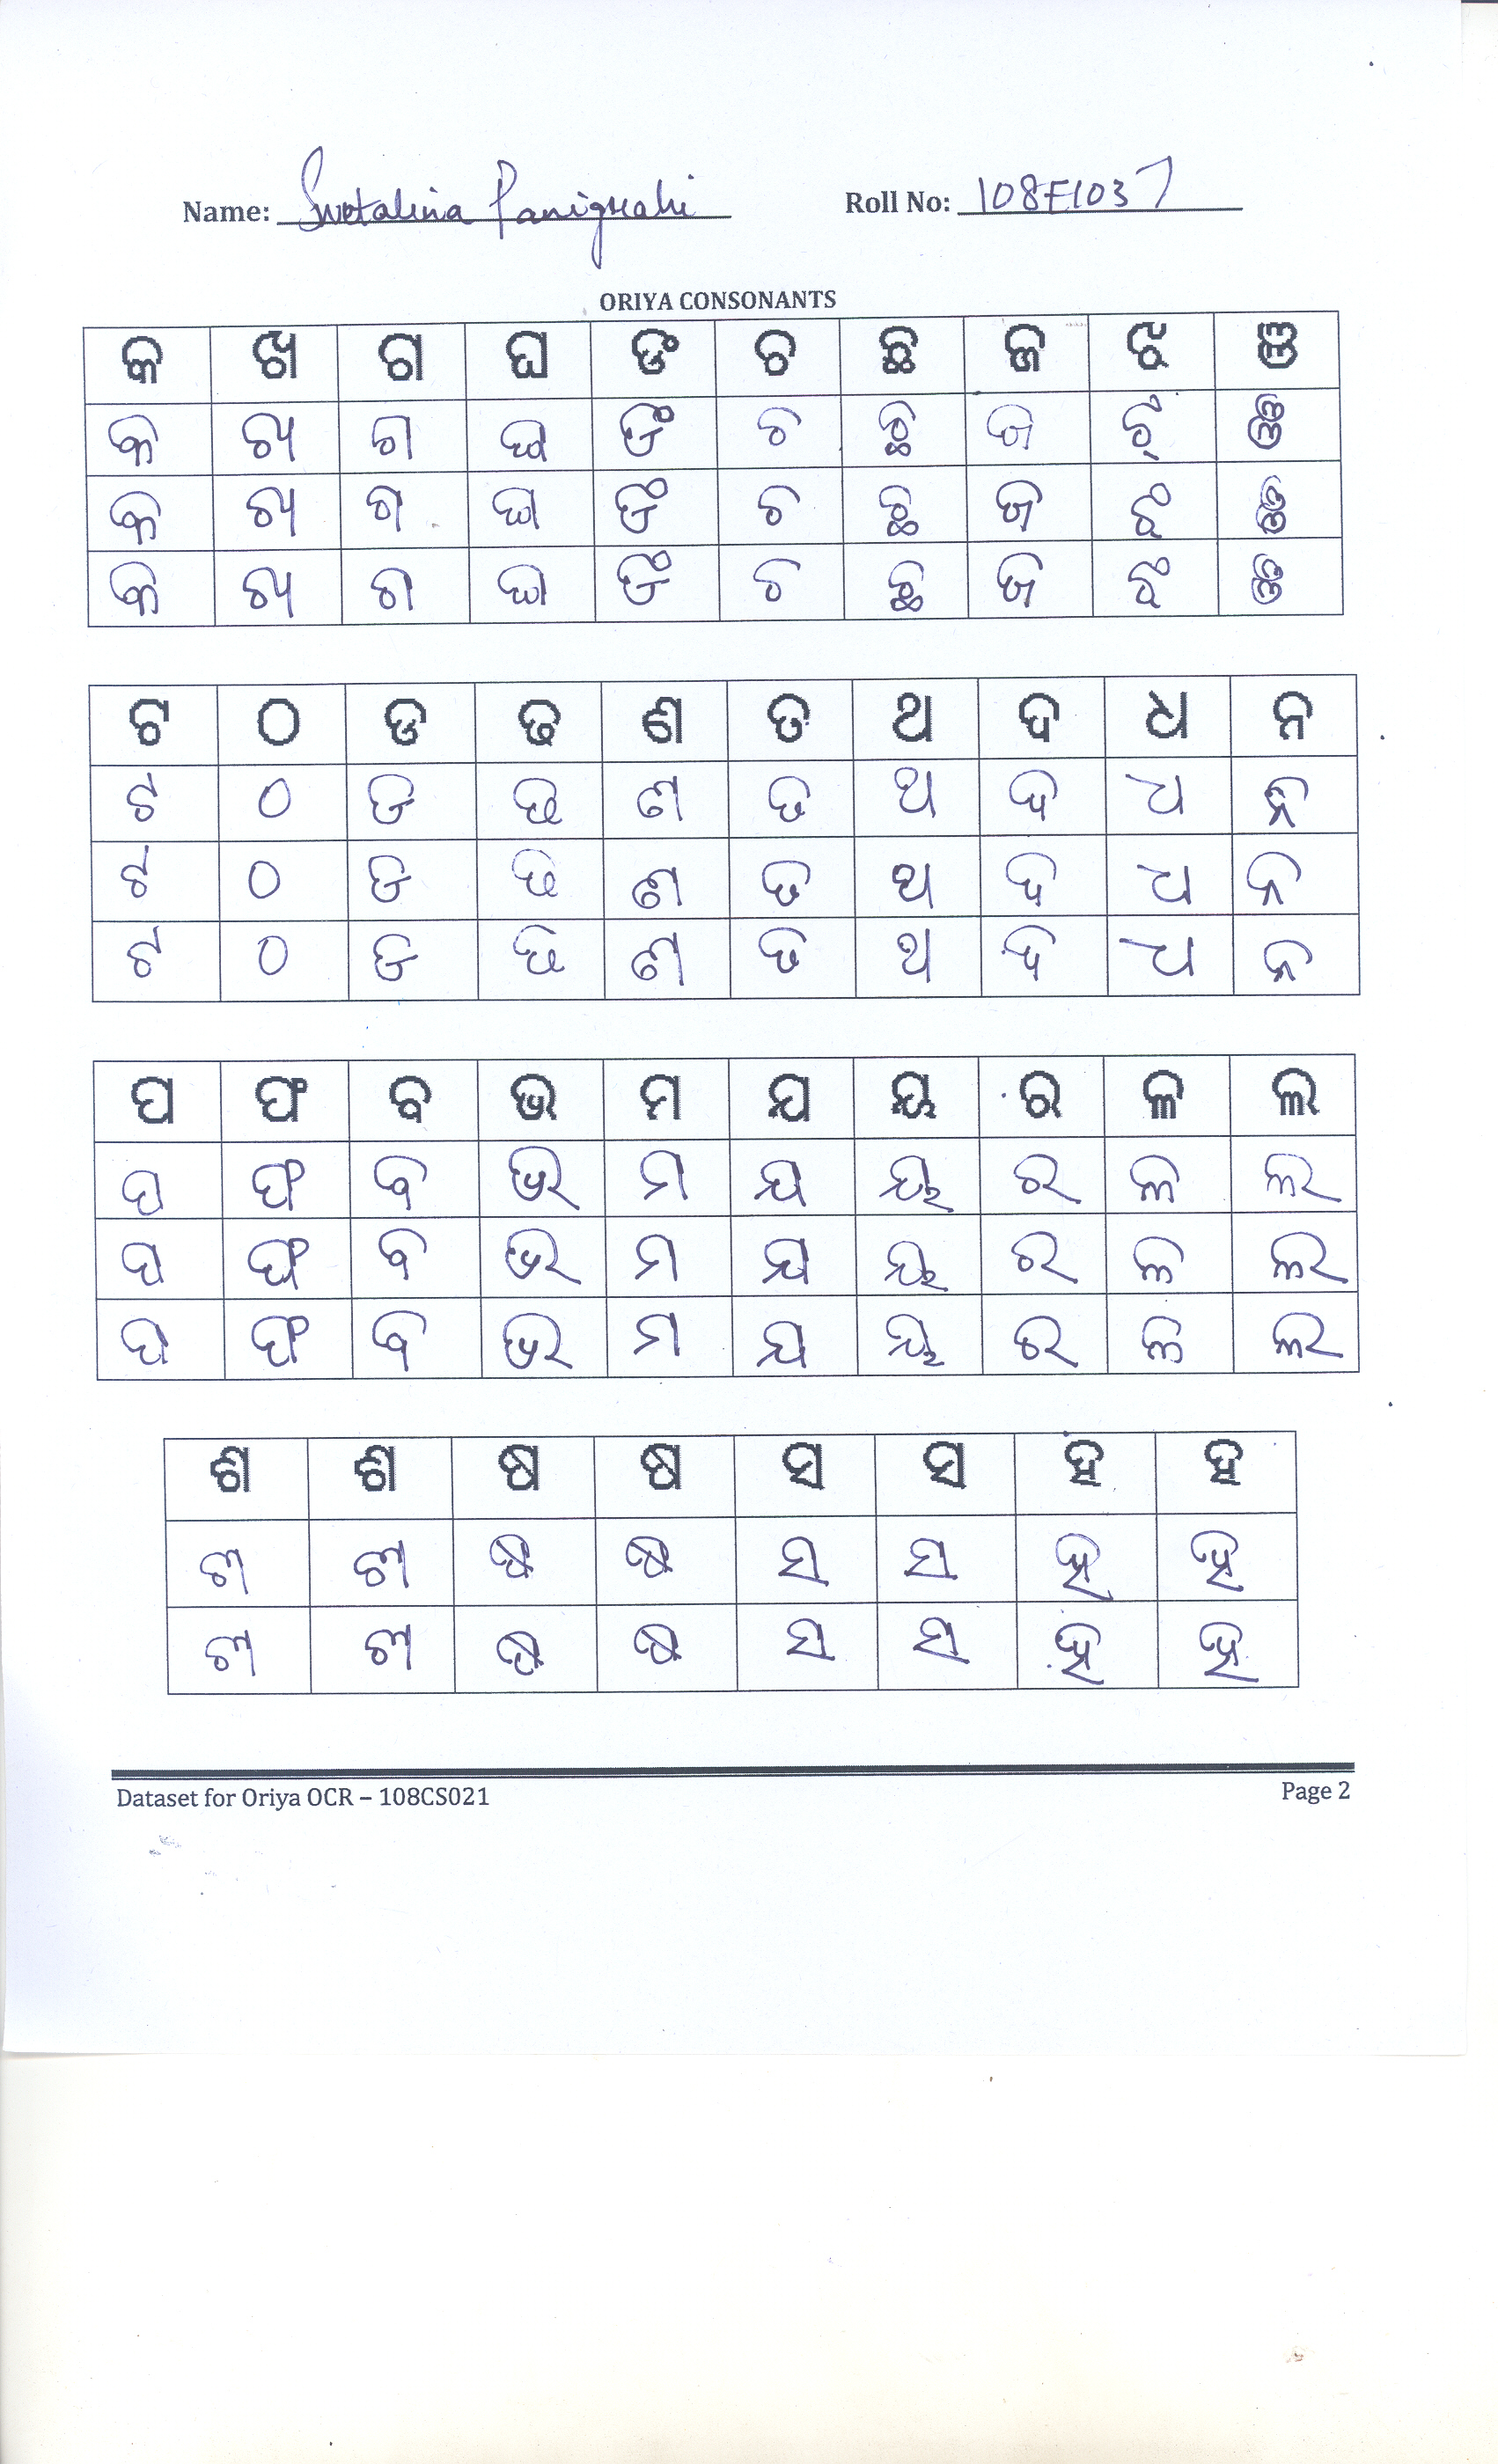 Name: Swetalina Panigrahi Roll No: 108EI037
ORIYA CONSONANTS
କ ଖ ଗ ଘ ଙ ଚ ଛ ଜ ଝ ଞ
କ ଖ ଗ ଘ ଙ ଚ ଛ ଜ ଝ ଞ
କ ଖ ଗ ଘ ଙ ଚ ଛ ଜ ଝ ଞ
କ ଖ ଗ ଘ ଙ ଚ ଛ ଜ ଝ ଞ
ଟ ଠ ଡ ଢ ଣ ତ ଥ ଦ ଧ ନ
ଟ ଠ ଡ ଢ ଣ ତ ଥ ଦ ଧ ନ
ଟ ଠ ଡ ଢ ଣ ତ ଥ ଦ ଧ ନ
ଟ ଠ ଡ ଢ ଣ ତ ଥ ଦ ଧ ନ
ପ ଫ ବ ଭ ମ ଯ ୟ ର ଳ ଲ
ପ ଫ ବ ଭ ମ ଯ ୟ ର ଳ ଲ
ପ ଫ ବ ଭ ମ ଯ ୟ ର ଳ ଲ
ପ ଫ ବ ଭ ମ ଯ ୟ ର ଳ ଲ
ଶ ଶ ଷ ଷ ସ ସ ହ ହ
ଶ ଶ ଷ ଷ ସ ସ ହ ହ
ଶ ଶ ଷ ଷ ସ ସ ହ ହ
Dataset for Oriya OCR – 108CS021 Page 2